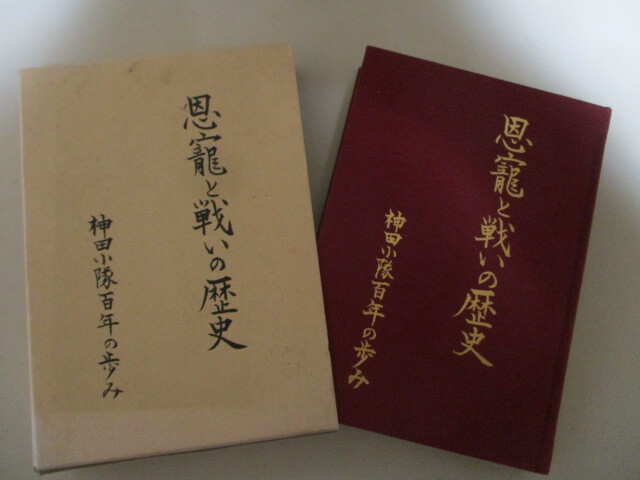 恩寵と戦いの歴史
神田小隊百年の歩み
恩寵と戦いの歴史
神田小隊百年の歩み